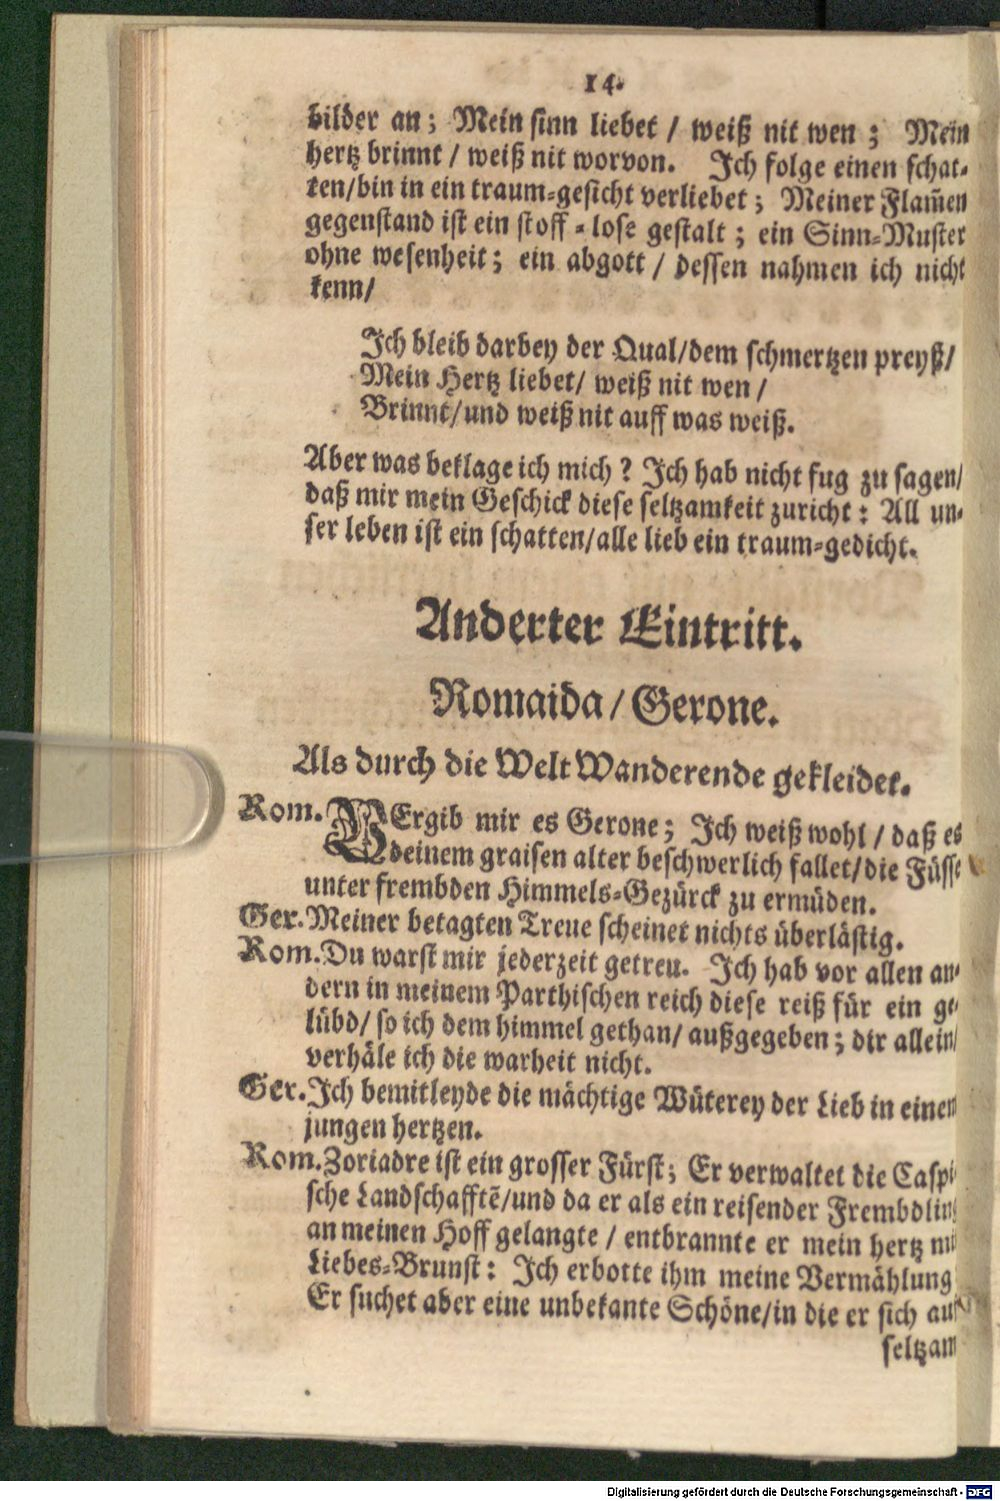 14.
bilder an; Mein sinn liebet / weiß nit wen; Mein
hertz brinnt / weiß nit worvon. Ich folge einen schat-
ten/bin in ein traum-gesicht verliebet; Meiner Flam̃en
gegenstand ist ein stoff-lose gestalt; ein Sinn-Muster
ohne wesenheit; ein abgott / dessen nahmen ich nicht
kenn/
Ich bleib darbey der Qual/dem schmertzen preyß/
Mein Hertz liebet/ weiß nit wen /
Brinnt/und weiß nit auff was weiß.
Aber was beklage ich mich? Ich hab nicht fug zu sagen/
daß mir mein Geschick diese seltzamkeit zuricht: All un-
ser leben ist ein schatten/alle lieb ein traum-gedicht.
Anderter Eintritt.
Romaida / Gerone.
Als durch die Welt Wanderende gekleidet.
Rom. VErgib mir es Gerone; Ich weiß wohl / daß es
deinem graisen alter beschwerlich fallet/die Füsse
unter frembden Himmels-Gezürck zu ermüden.
Ger. Meiner betagten Treue scheinet nichts überlästig.
Rom. Du warst mir jederzeit getreu. Ich hab vor allen an-
dern in meinem Parthischen reich diese reiß für ein ge-
lübd/ so ich dem himmel gethan/ außgegeben; dir allein/
verhäle ich die warheit nicht.
Ger. Ich bemitleyde die mächtige Wüterey der Lieb in einen
jungen hertzen.
Rom. Zoriadre ist ein grosser Fürst; Er verwaltet die Caspi-
sche Landschafftẽ/und da er als ein reisender Frembdling
an meinen Hoff gelangte / entbrannte er mein hertz mit
Liebes-Brunst: Ich erbotte ihm meine Vermählung
Er suchet aber eine unbekante Schöne/in die er sich auf
seltzam
Digitalisierung gefördert durch die Deutsche Forschungsgemeinschaft - DFG